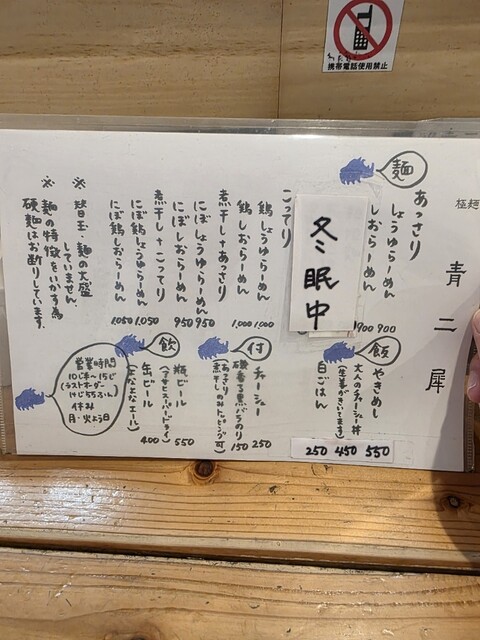 携帯電話使用禁止
極麺
青二犀
麺
あっさり
しょうゆらーめん 900
しおらーめん 900
冬眠中
こってり
鶏しょうゆらーめん 1,000
鶏しおらーめん 1,000
煮干し+あっさり
にぼしょうゆらーめん 950
にぼしおらーめん 950
煮干し+こってり
にぼ鶏しょうゆらーめん 1,050
にぼ鶏しおらーめん 1,050
※替玉・麺の大盛
していません。
※麺の特徴をいかす為
硬麺はお断りしています。
飯
やきめし 550
大人のチャーシュー丼 450
(生姜がきいてます)
白ごはん 250
付
チャーシュー 250
磯香る黒バラのり 150
(あっさり
煮干しのみトッピング可)
飲
瓶ビール 550
(アサヒスーパードライ)
缶ビール 400
(よなよなエール)
営業時間
10じ半〜15じ
(ラストオーダー
14じ55ふん)
休み
月・火よう日